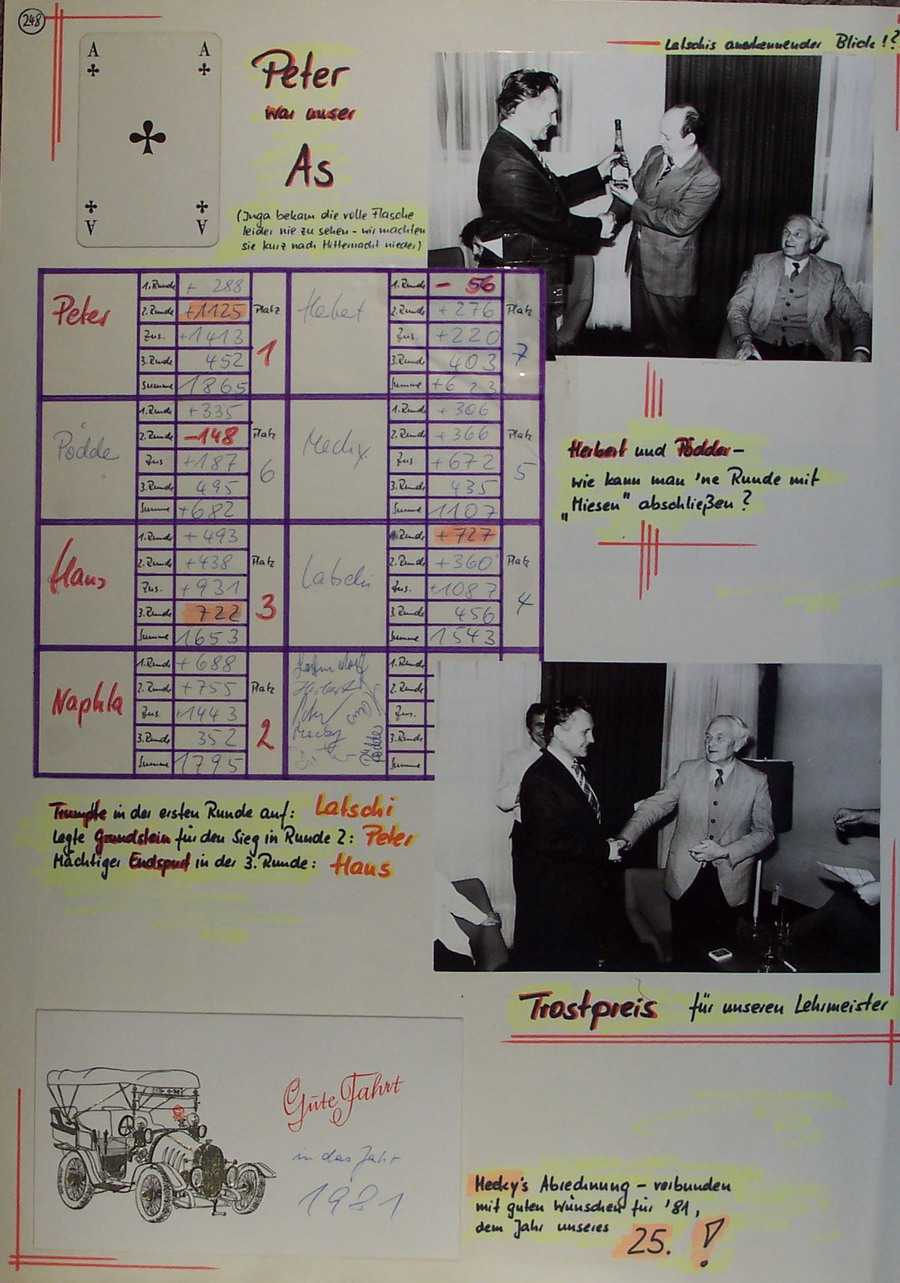 248
A A
Latschis anerkennender Blick!?
Peter
war unser
As
(Inga bekam die volle Flasche
leider nie zu sehen - wir machten
sie kurz nach Mitternacht nieder)
A A
Peter
1. Runde + 288
2. Runde +1125
Zus. +1413
3. Runde 452
Summe 1865
Platz
1
Herbert
1. Runde - 56
2. Runde + 276
Zus. +220
3. Runde 403
Summe +623
Platz
7
Pödde
1. Runde +335
2. Runde -148
Zus +187
3. Runde 495
Summe +682
Platz
6
Mecky
1. Runde + 306
2. Runde + 366
Zus. +672
3. Runde 435
Summe 1107
Platz
5
Hans
1. Runde + 493
2. Runde +438
Zus. +931
3. Runde 722
Summe 1653
Platz
3
Latschi
1. Runde +727
2. Runde +360
Zus. +1087
3. Runde 456
Summe 1543
Platz
4
Naphta
1. Runde +688
2. Runde +755
Zus. +1443
3. Runde 352
Summe 1795
Platz
2
Herbert
Mecky
Pödde
1. Runde
2. Runde
Zus.
3. Runde
Summe
Herbert und Pödder-
wie kann man 'ne Runde mit
„Miesen" abschließen?
Trumpfte in der ersten Runde auf: Latschi
Legte Grundstein für den Sieg in Runde 2: Peter
Mächtiger Endspurt in der 3. Runde: Hans
Trostpreis für unseren Lehrmeister
Gute Fahrt
in das Jahr
1981
Mecky's Abrechnung - verbunden
mit guten Wünschen für '81,
dem Jahr unseres
25. !